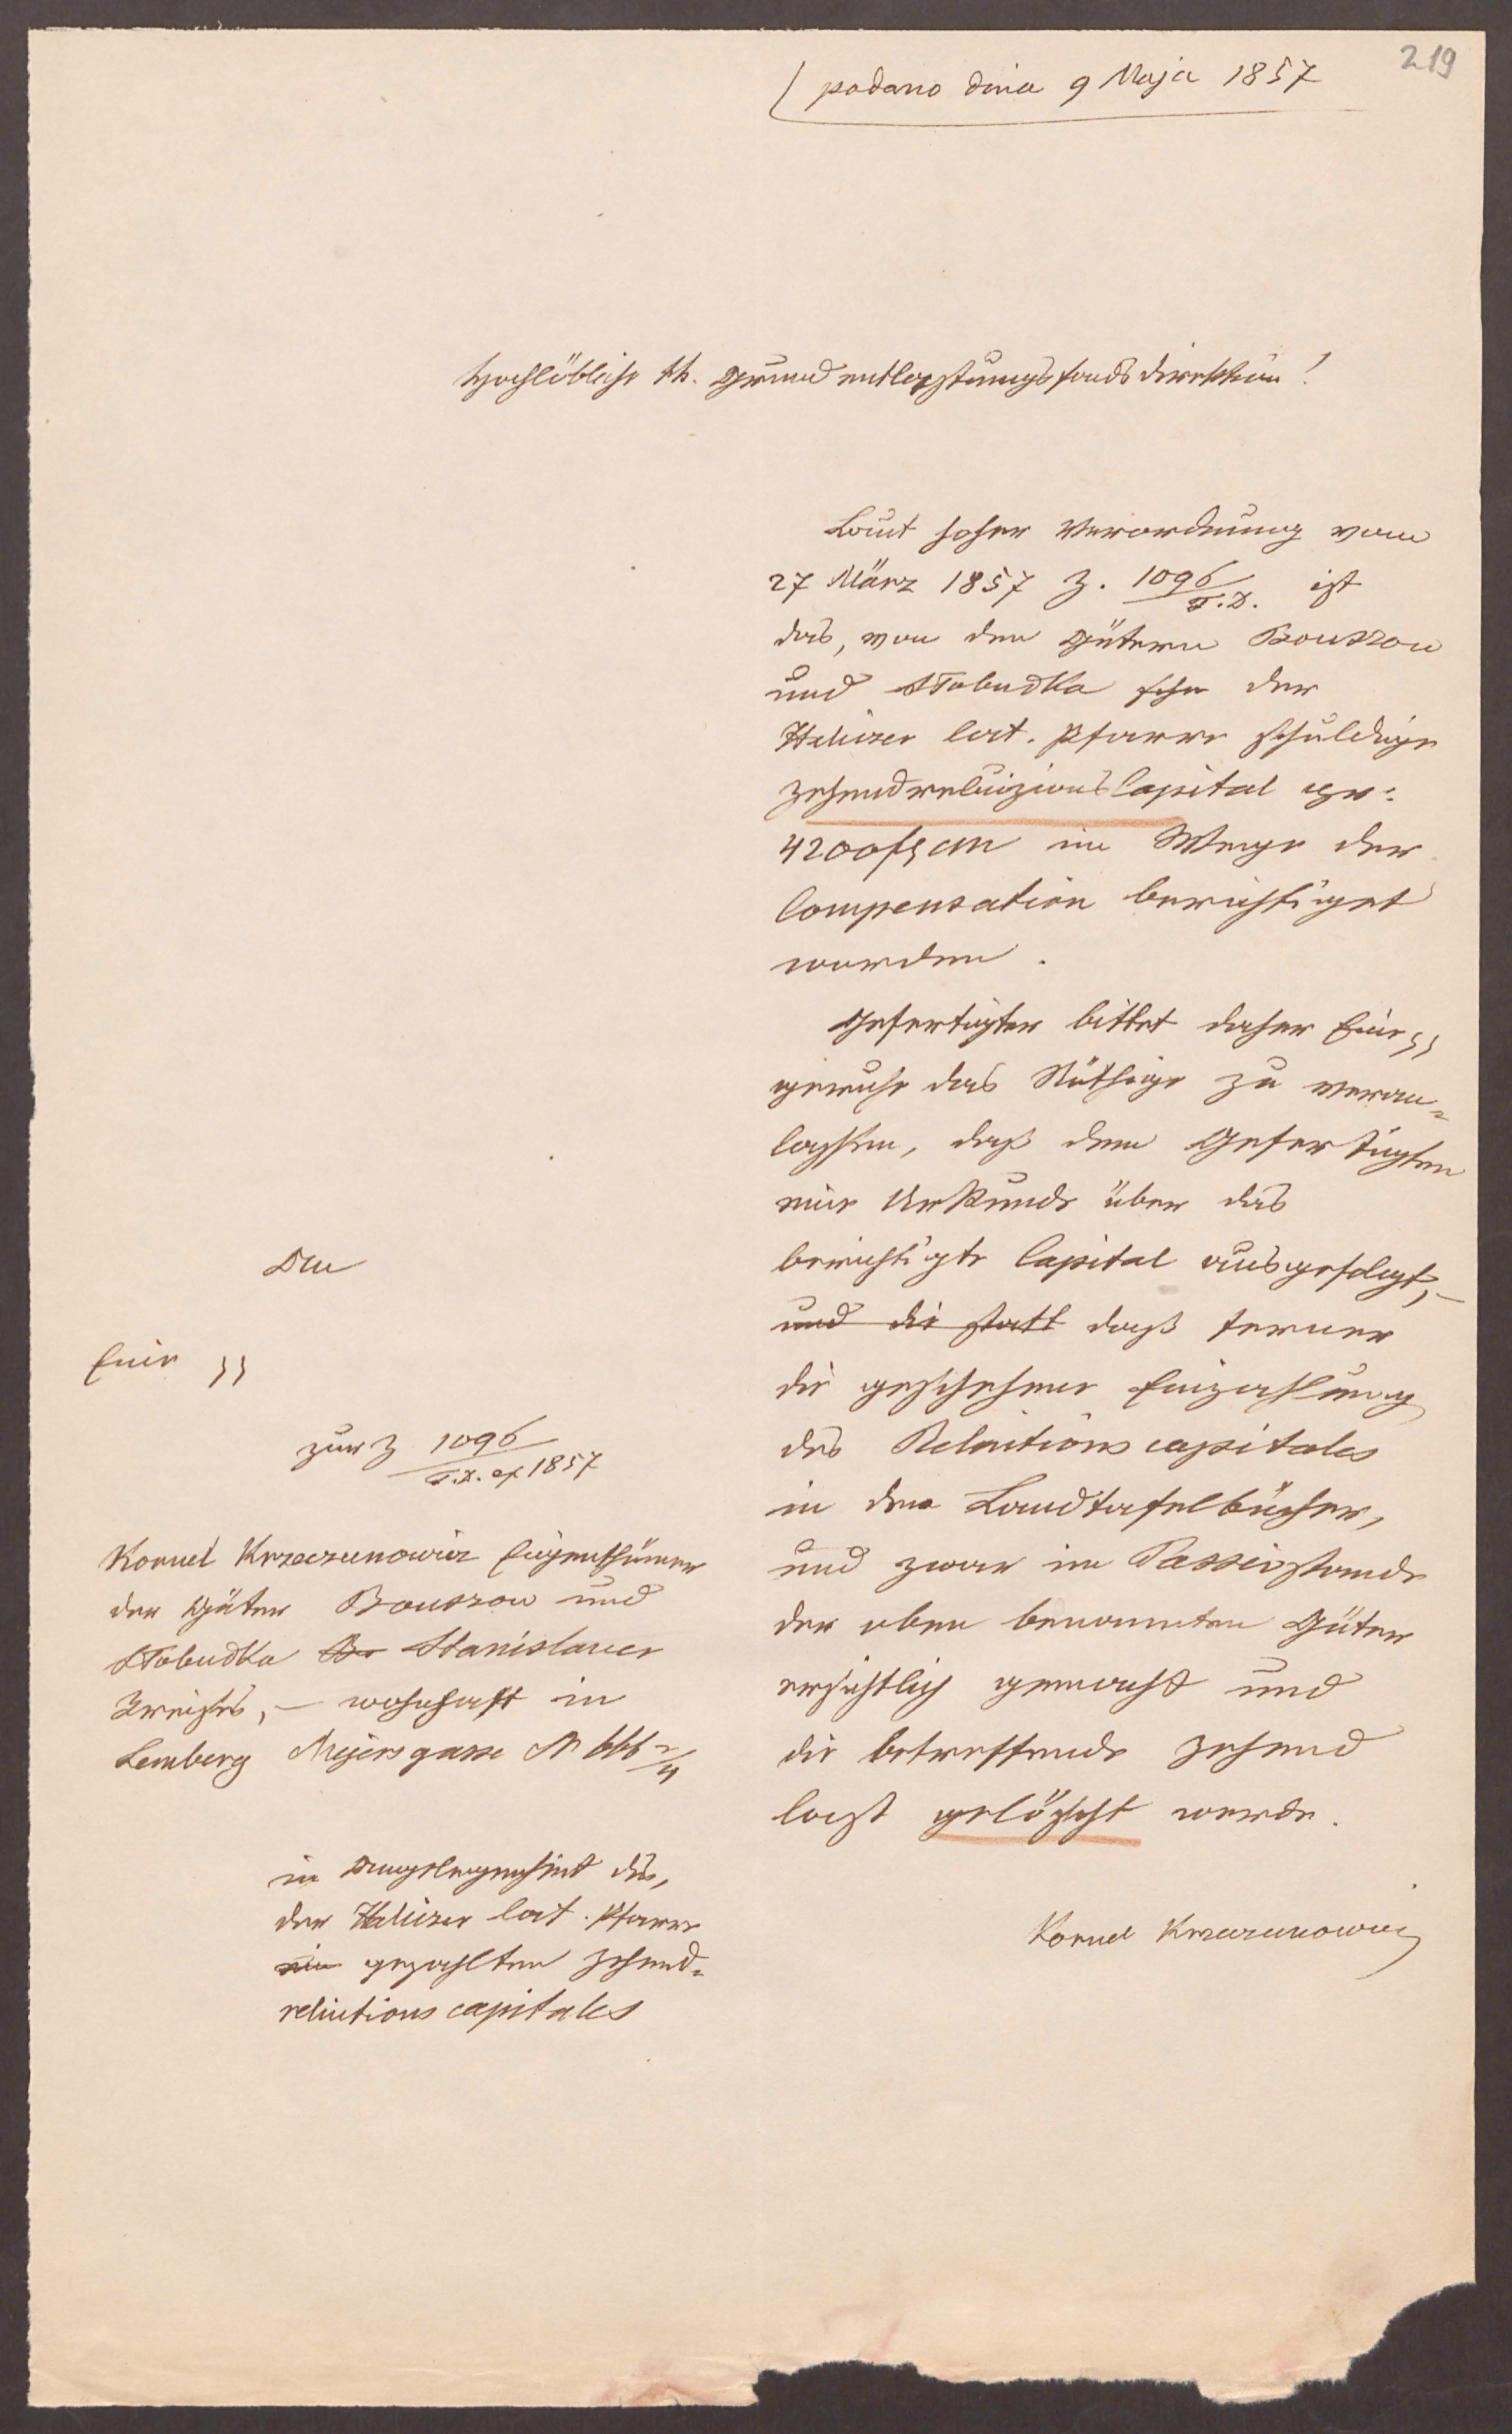 219
podano dnia 9 Maja 1857
Hochlöbliche kk. Grundentlastungsfondsdirektion!
Laut hoher Verordnung vom
27 März 1857 Z. 1096/F.D. ist
das, von den Gütern Bouszow
und Słobudka der
Haliczer lat. Pfarre schuldige
Zehendreluizions Capital pr:
4200 f CM im Wege der
Compensation berichtiget
worden.
Gefertigter bittet daher Eine
geruhe das Nöthige zu veran-
lassen, daß dem Gefertigten
eine Urkunde über das
berichtigte Capital ausgefolgt,
und die statt daß ferner
die geschehene Einzahlung
des Reluitions capitales
in den Landtafelbücher,
und zwar im Passivstande
der oben benannten Güter
ersichtlich gemacht und
die betreffende Zehend
last gelöscht werde.
Kornel Krzeczunowicz
An
Eine
zur Z 1096/F.D. ex 1857
Kornel Krzeczunowicz Eigenthümer
der Güter Bouszow und
Słobudka Stanislauer
Kreises, – wohnhaft in
Lemberg Majersgasse N 666 2/4
in Angelegenheit des,
der Haliczer lat. Pfarre
gezahlten Zehend-
reluitions capitales